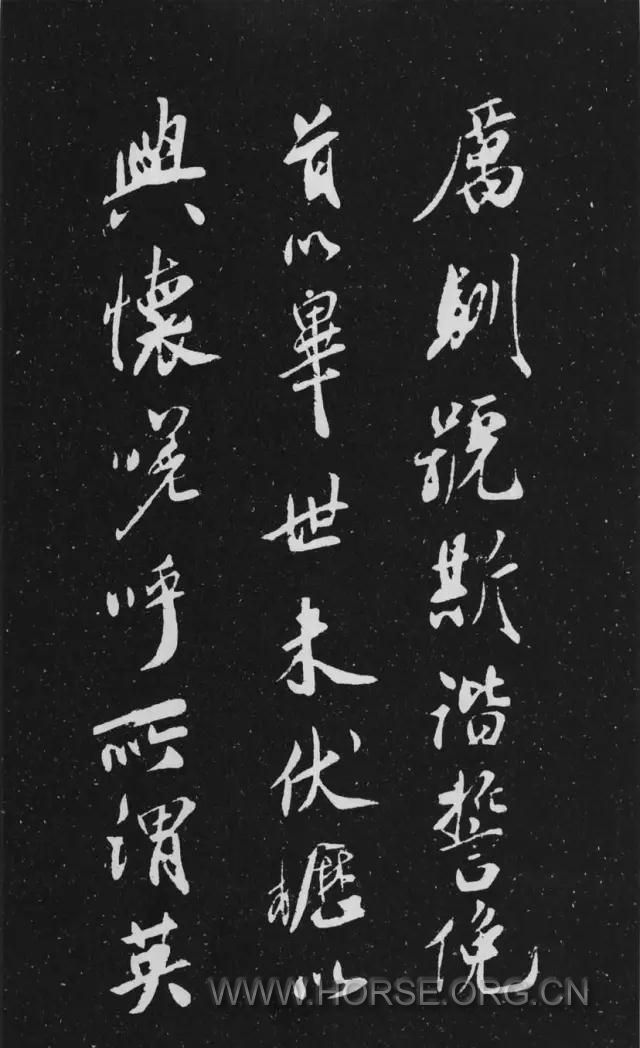 厲馴號斯諧誓俛
首以畢世未伏櫪以
興懷嗟呼所謂英
WWW.HORSE.ORG.CN